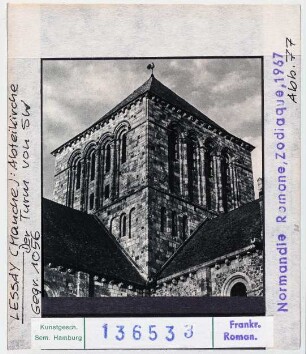 LESSAY (Manche): Abteikirche
Der Turm von SW
Gegr. 1056
Normandie Romane, Zodiaque, 1967
Abb. 77
Kunstgesch.
Sem. Hamburg
136533
Frankr.
Roman.